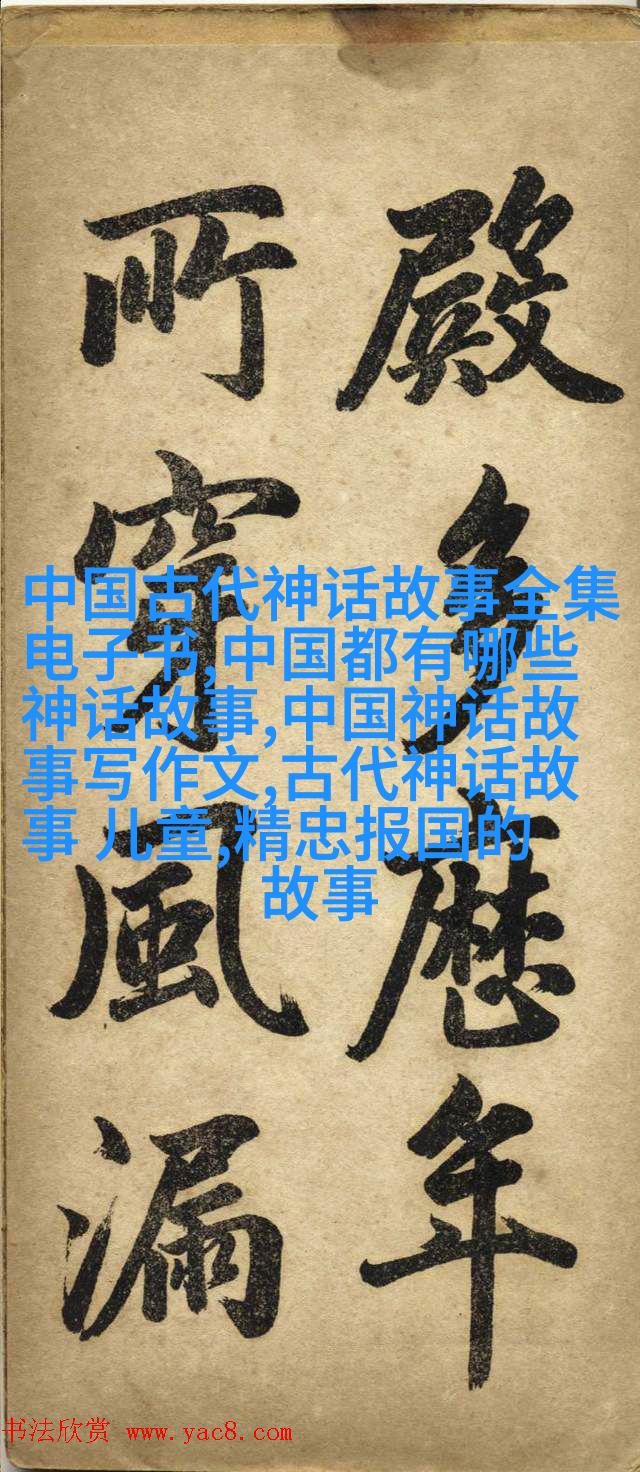 殿多歷年
所穿風漏
中国古代神话故事全集
电子书,中国都有哪些
神话故事,中国神话故
事写作文,古代神话故
事 儿童,精忠报国的
故事
书法欣赏 www.yac8.com